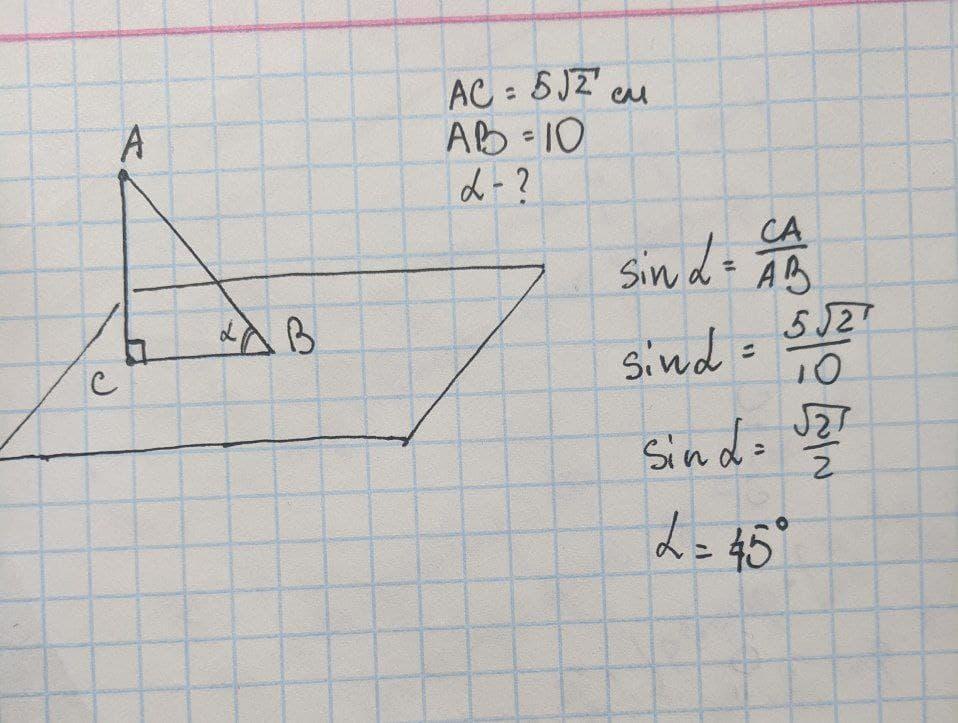 AC = 5√2 см
AB = 10
α - ?
A
α B
C
sin α = CA/AB
sin α = 5√2/10
sin α = √2/2
α = 45°